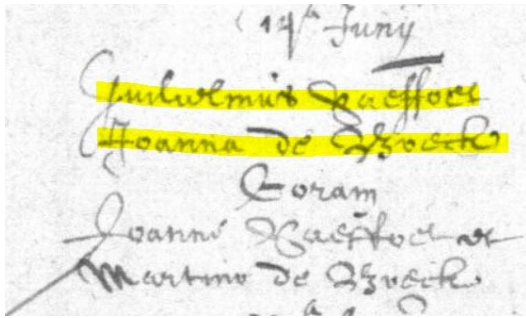 14ᵃ Junij
Guilielmus Raessoet
Joanna de Broeck
Coram
Joanne Raessoet et
Martino de Broeck